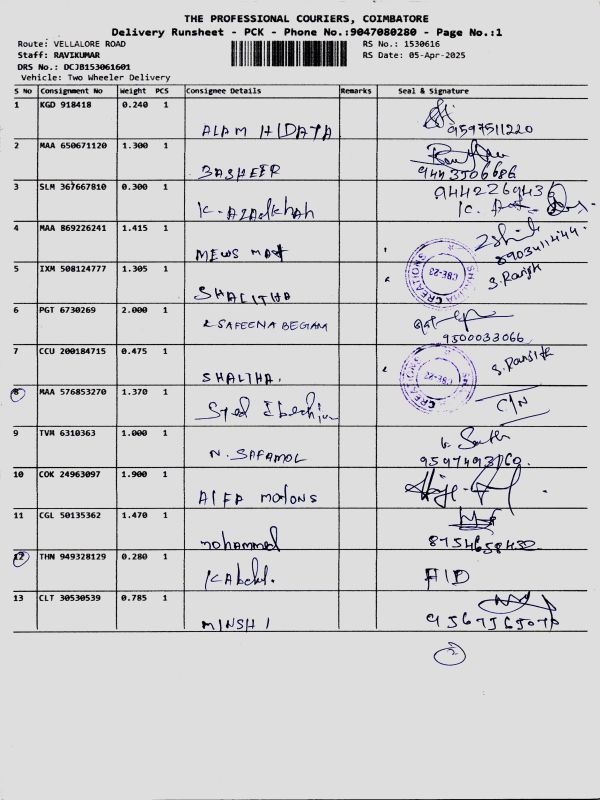 THE PROFESSIONAL COURIERS, COIMBATORE
Delivery Runsheet - PCK - Phone No.:9047080280 - Page No.:1
Route: VELLALORE ROAD RS No.: 1530616
Staff: RAVIKUMAR RS Date: 05-Apr-2025
DRS No.: DCJB153061601
Vehicle: Two Wheeler Delivery
S No Consignment No Weight PCS Consignee Details Remarks Seal & Signature
1 KGD 918418 0.240 1
ALAM HIDAYA 9597511220
2 MAA 650671120 1.300 1
BASHEER 9443506686
3 SLM 367667810 0.300 1
K. AZADKHAH
4 MAA 869226241 1.415 1
MEWS MAT
5 IXM 508124777 1.305 1
SHALITHA CREATIONS CBE-23 S. Ranjit
6 PGT 6730269 2.000 1
SAFEENA BEGAM 9500033066
7 CCU 200184715 0.475 1
SHALTHA. CREATIONS CBE-23 S. Ranjit
8 MAA 576853270 1.370 1
Syed C/N
9 TVM 6310363 1.000 1
N. SAFAMOL
10 COK 24963097 1.900 1
ALFA motons
11 CGL 50135362 1.470 1
mohammed 8754658430
12 THN 949328129 0.280 1
K Abdul. AID
13 CLT 30530539 0.785 1
MINSHI
2